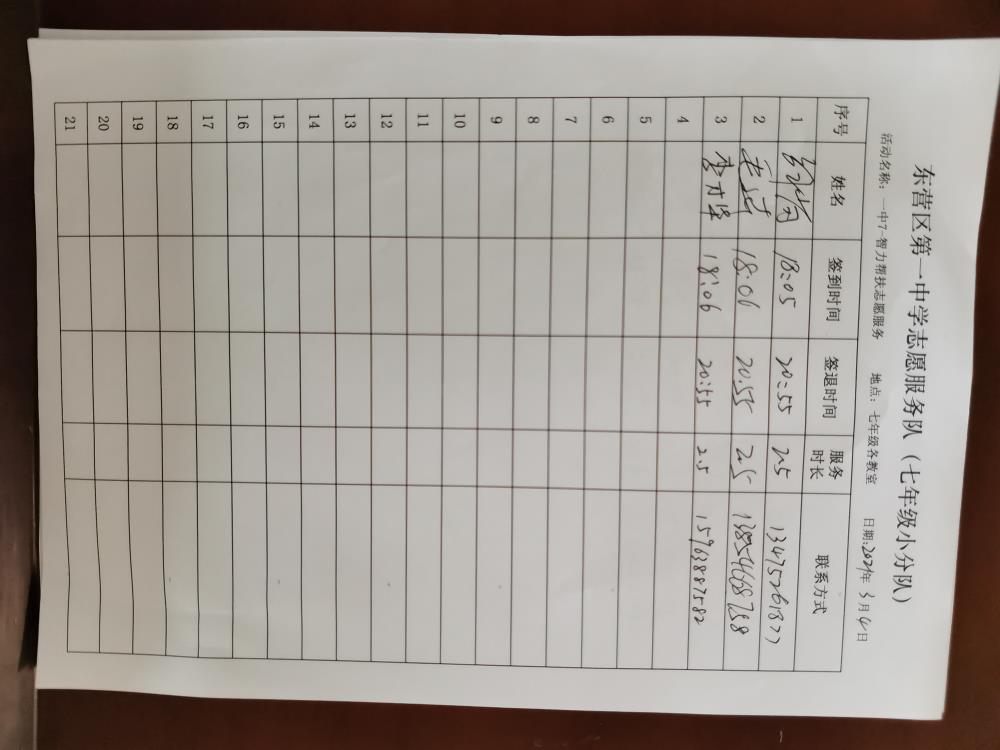 东营区第一中学志愿服务队（七年级小分队）
活动名称：一中7-智力帮扶志愿服务 地点：七年级各教室 日期:2024年 3月4日
序号 姓名 签到时间 签退时间 服务时长 联系方式
1 18:05 20:55 2.5 13475261877
2 18:06 20:55 2.5 13854668758
3 18:06 20:55 2.5 15963887582
4
5
6
7
8
9
10
11
12
13
14
15
16
17
18
19
20
21